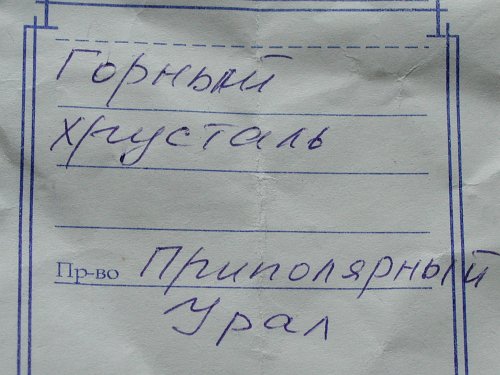 Горный
хрусталь
Пр-во Приполярный
Урал